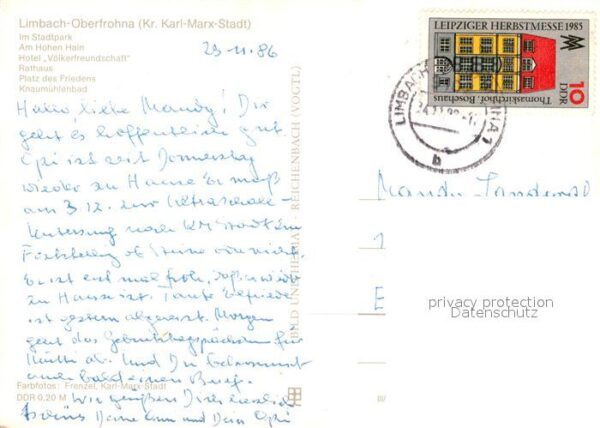 Limbach-Oberfrohna (Kr. Karl-Marx-Stadt)
Im Stadtpark
Am Hohen Hain
Hotel „Völkerfreundschaft"
Rathaus
Platz des Friedens
Knaumühlenbad
23.11.86
Hallo, liebe Mandy! Dir
geht es hoffentlich gut.
Opi ist seit Donnerstag
wieder zu Hause Er muß
am 3.12. zur Ultraschall-
untersuchung nach KM Stadt zur
Feststellung ob Steine oder nicht.
Er ist erst mal froh, daß er wieder
zu Hause ist. Tante Elfriede
ist gestern abgereist. Morgen
geht das Geburtstagspäckchen für
Mutti ab. Und Du bekommst
auch bald einen Brief.
Wir grüßen Dich herzlich
Deine Omi und Dein Opi
Farbfotos: Frenzel, Karl-Marx-Stadt
DDR 0,20 M
BILD UND HEIMAT REICHENBACH (VOGTL)
III/
LEIPZIGER HERBSTMESSE 1985
MM
10
DDR
Thomaskirchhof · Bosehaus
LIMBACH
NA 1
b
Mandy
1
E
privacy protection
Datenschutz